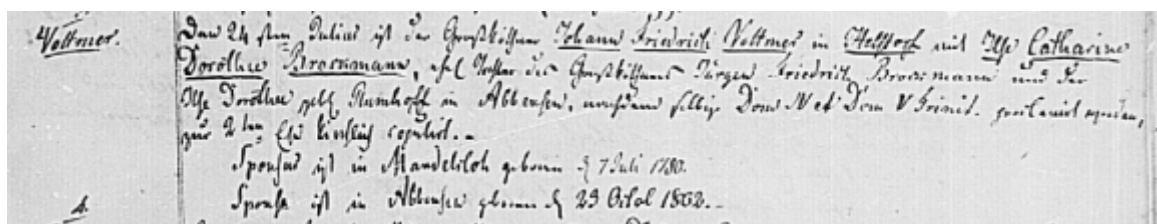 Vollmer.
Den 24 sten Julius ist der Großköthner Johann Friedrich Vollmer in Helstorf mit Ilse Catharine
Dorothee Brockmann, ehel. Tochter des Großköthners Jürgen Friedrich Brockmann und der
Ilse Dorothee gebh. Rumhoff in Abbensen, nachdem selbige Dom IV et Dom V Trinit. proclamirt worden,
zur 2ten Ehe kirchlich copulirt. -
Sponsus ist in Mandelsloh geboren d. 7 Juli 1780.
Sponsa ist in Abbensen geboren d. 23 Octob 1802. -
4.